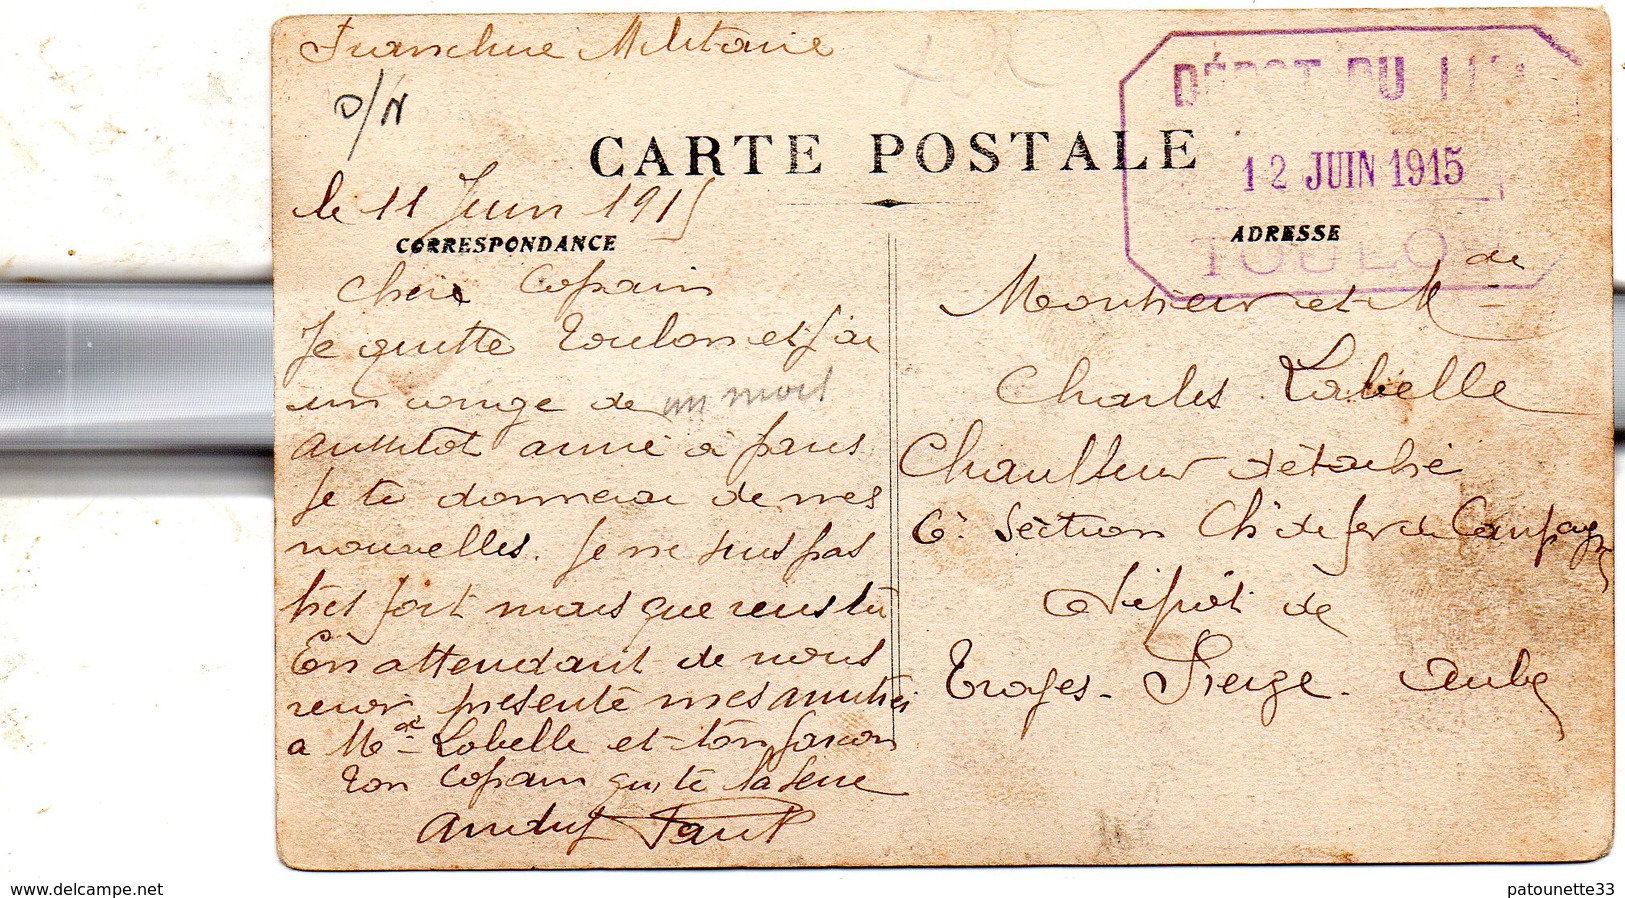 Franchise Militaire
D/N
DÉPOT DU
12 JUIN 1915
TOULON
CARTE POSTALE
le 11 Juin 1915
CORRESPONDANCE
ADRESSE
Cher Copain
Je quitte Toulon et j'ai
un conge de un mois
aussitot arrivé à paris
Je te donnerai de mes
nouvelles. Je ne suis pas
très fort mais que veus tu
En attendant de nous
revoir présente mes amitiés
a Mde Labelle et ton garcon
Ton Copain qui te la serre
Paul
Monsieur et Mde
Charles Labelle
Chauffeur détaché
6e Section Ch de fer de Campagne
Dépôt de
Troyes - Preize - Aube
www.delcampe.net
patounette33